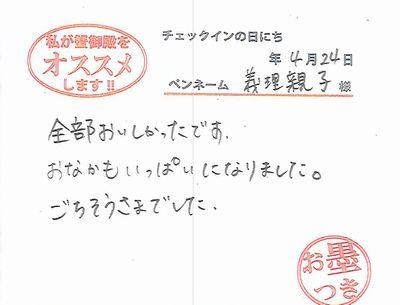 私が蟹御殿を
オススメ
します!!
チェックインの日にち
年 4月24日
ペンネーム 義理親子 様
全部おいしかったです.
おなかもいっぱいになりました。
ごちそうさまでした.
お墨
つき